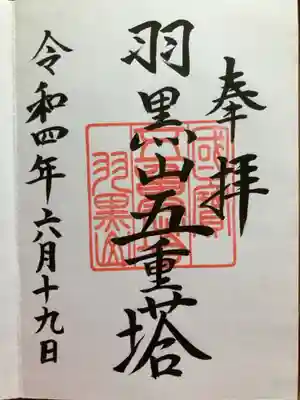 奉拝
羽黒山五重塔
國寶
五重塔
羽黒山
令和四年六月十九日